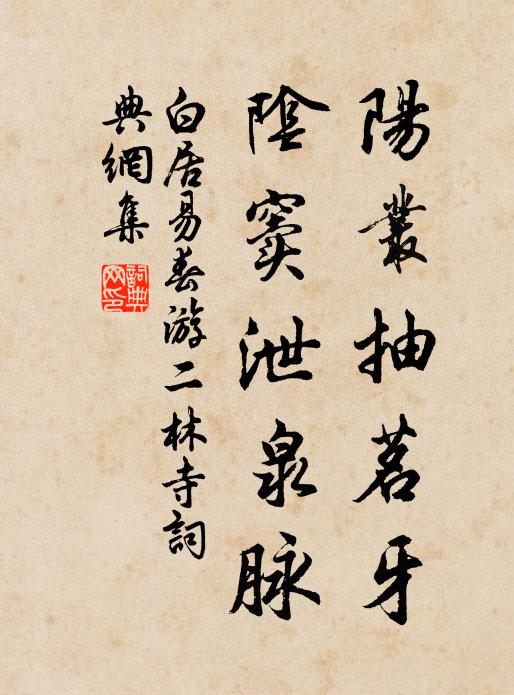 陽叢抽茗牙
陰竇泄泉脉
白居易春游二林寺詞
典網集
詞典网印